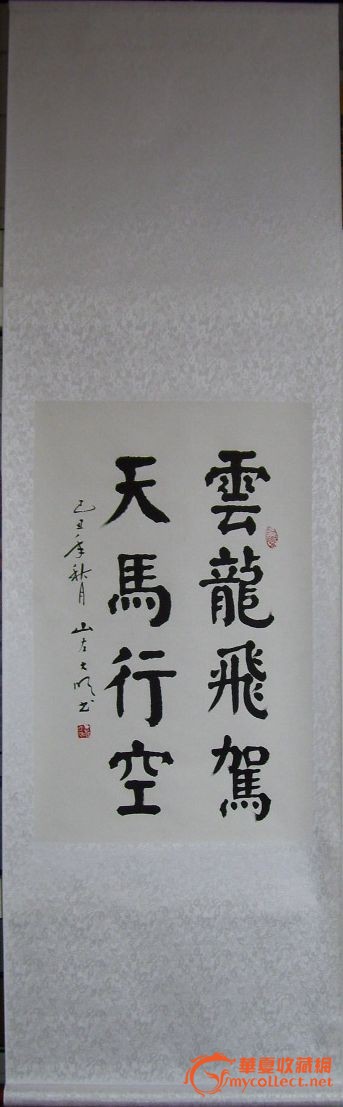 雲龍飛駕
天馬行空
己丑年秋月 山左大順书
華夏收藏網
mycollect.net